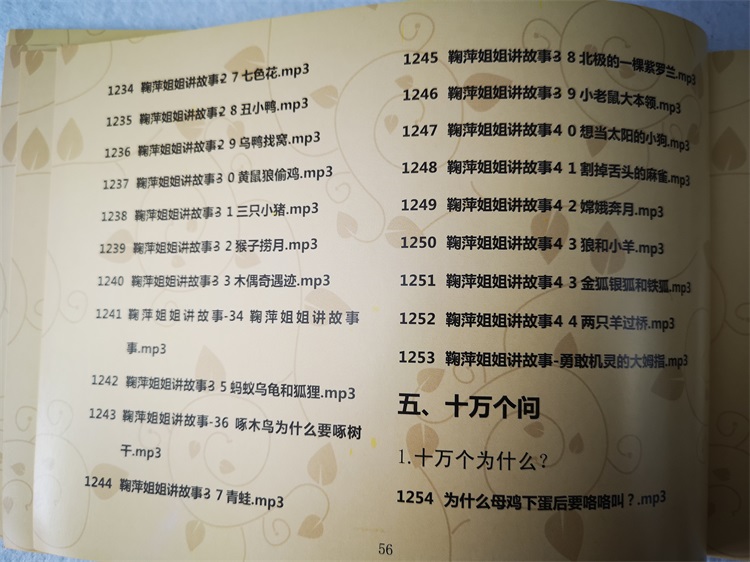 1234 鞠萍姐姐讲故事-2 7 七色花.mp3
1235 鞠萍姐姐讲故事-2 8 丑小鸭.mp3
1236 鞠萍姐姐讲故事-2 9 乌鸭找窝.mp3
1237 鞠萍姐姐讲故事-3 0 黄鼠狼偷鸡.mp3
1238 鞠萍姐姐讲故事-3 1 三只小猪.mp3
1239 鞠萍姐姐讲故事-3 2 猴子捞月.mp3
1240 鞠萍姐姐讲故事-3 3 木偶奇遇迹.mp3
1241 鞠萍姐姐讲故事-34 鞠萍姐姐讲故事
事.mp3
1242 鞠萍姐姐讲故事-3 5 蚂蚁乌龟和狐狸.mp3
1243 鞠萍姐姐讲故事-36 啄木鸟为什么要啄树
干.mp3
1244 鞠萍姐姐讲故事-3 7 青蛙.mp3
1245 鞠萍姐姐讲故事-3 8 北极的一棵紫罗兰.mp3
1246 鞠萍姐姐讲故事-3 9 小老鼠大本领.mp3
1247 鞠萍姐姐讲故事-4 0 想当太阳的小狗.mp3
1248 鞠萍姐姐讲故事-4 1 割掉舌头的麻雀.mp3
1249 鞠萍姐姐讲故事-4 2 嫦娥奔月.mp3
1250 鞠萍姐姐讲故事-4 3 狼和小羊.mp3
1251 鞠萍姐姐讲故事-4 3 金狐银狐和铁狐.mp3
1252 鞠萍姐姐讲故事-4 4 两只羊过桥.mp3
1253 鞠萍姐姐讲故事-勇敢机灵的大姆指.mp3
五、十万个问
1.十万个为什么？
1254 为什么母鸡下蛋后要咯咯叫？.mp3
56